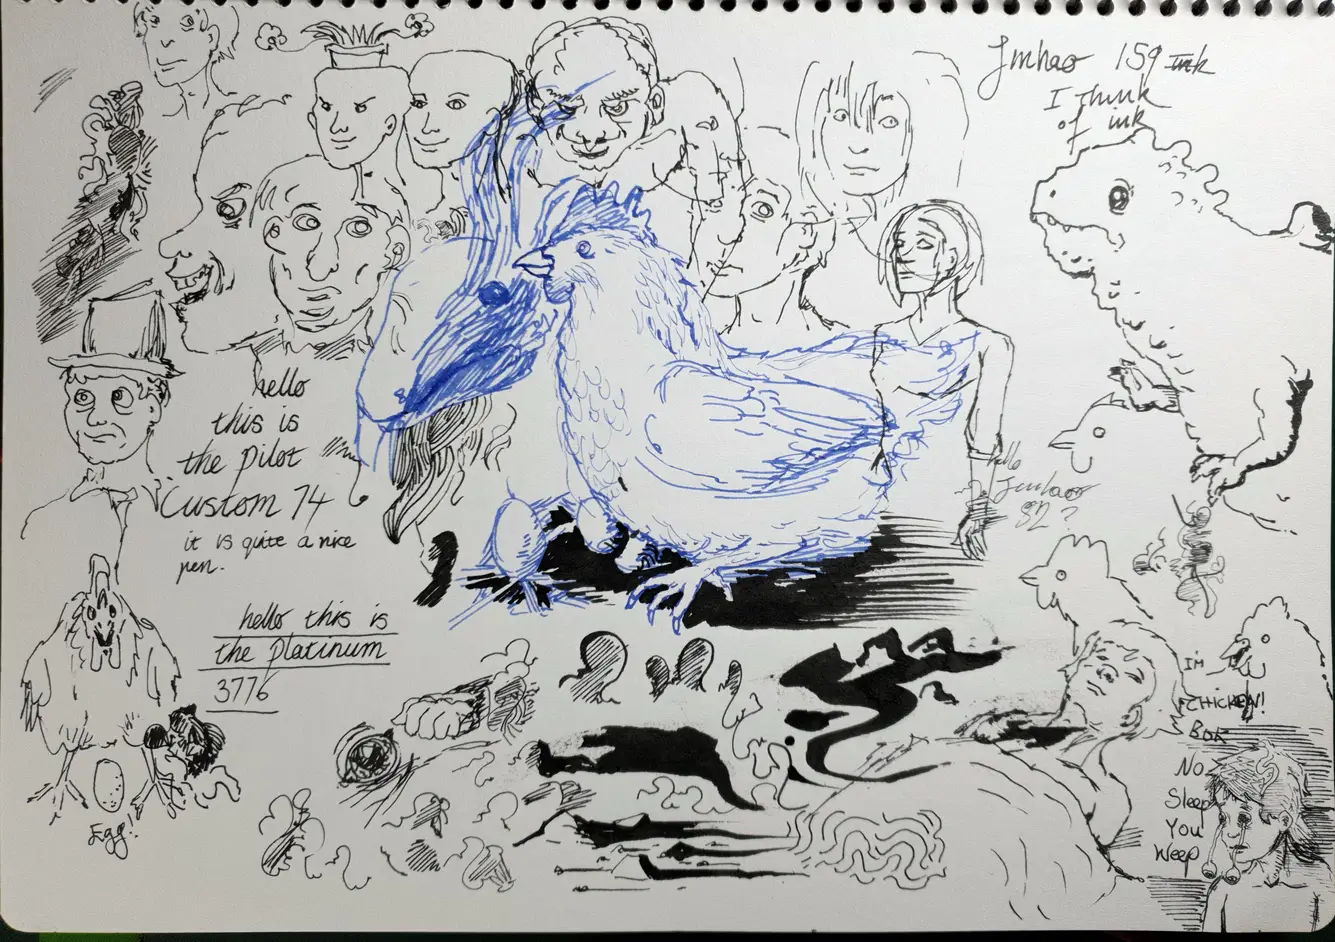 Jmhao 159 Ink
I think
of ink
hello
this is
the pilot
Custom 74
it is quite a nice
pen.
hello this is
the platinum
3776
Egg!
hello
Jinhao
82?
I'm
CHICKEN!
Bok
No
Sleep
You
Weep